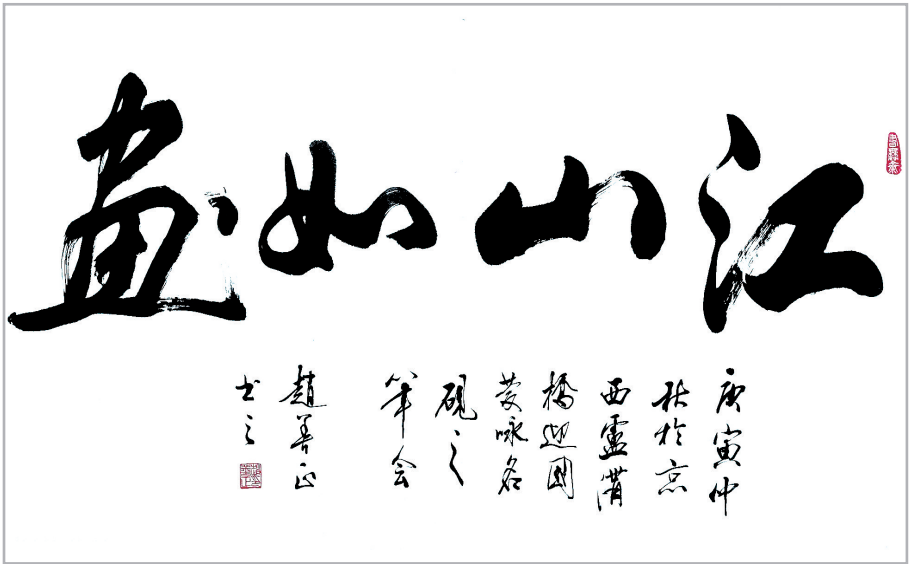 江山如畫
庚寅仲
秋於京
西盧溝
橋迎國
慶咏名
硯之
筆会
趙善正
书之